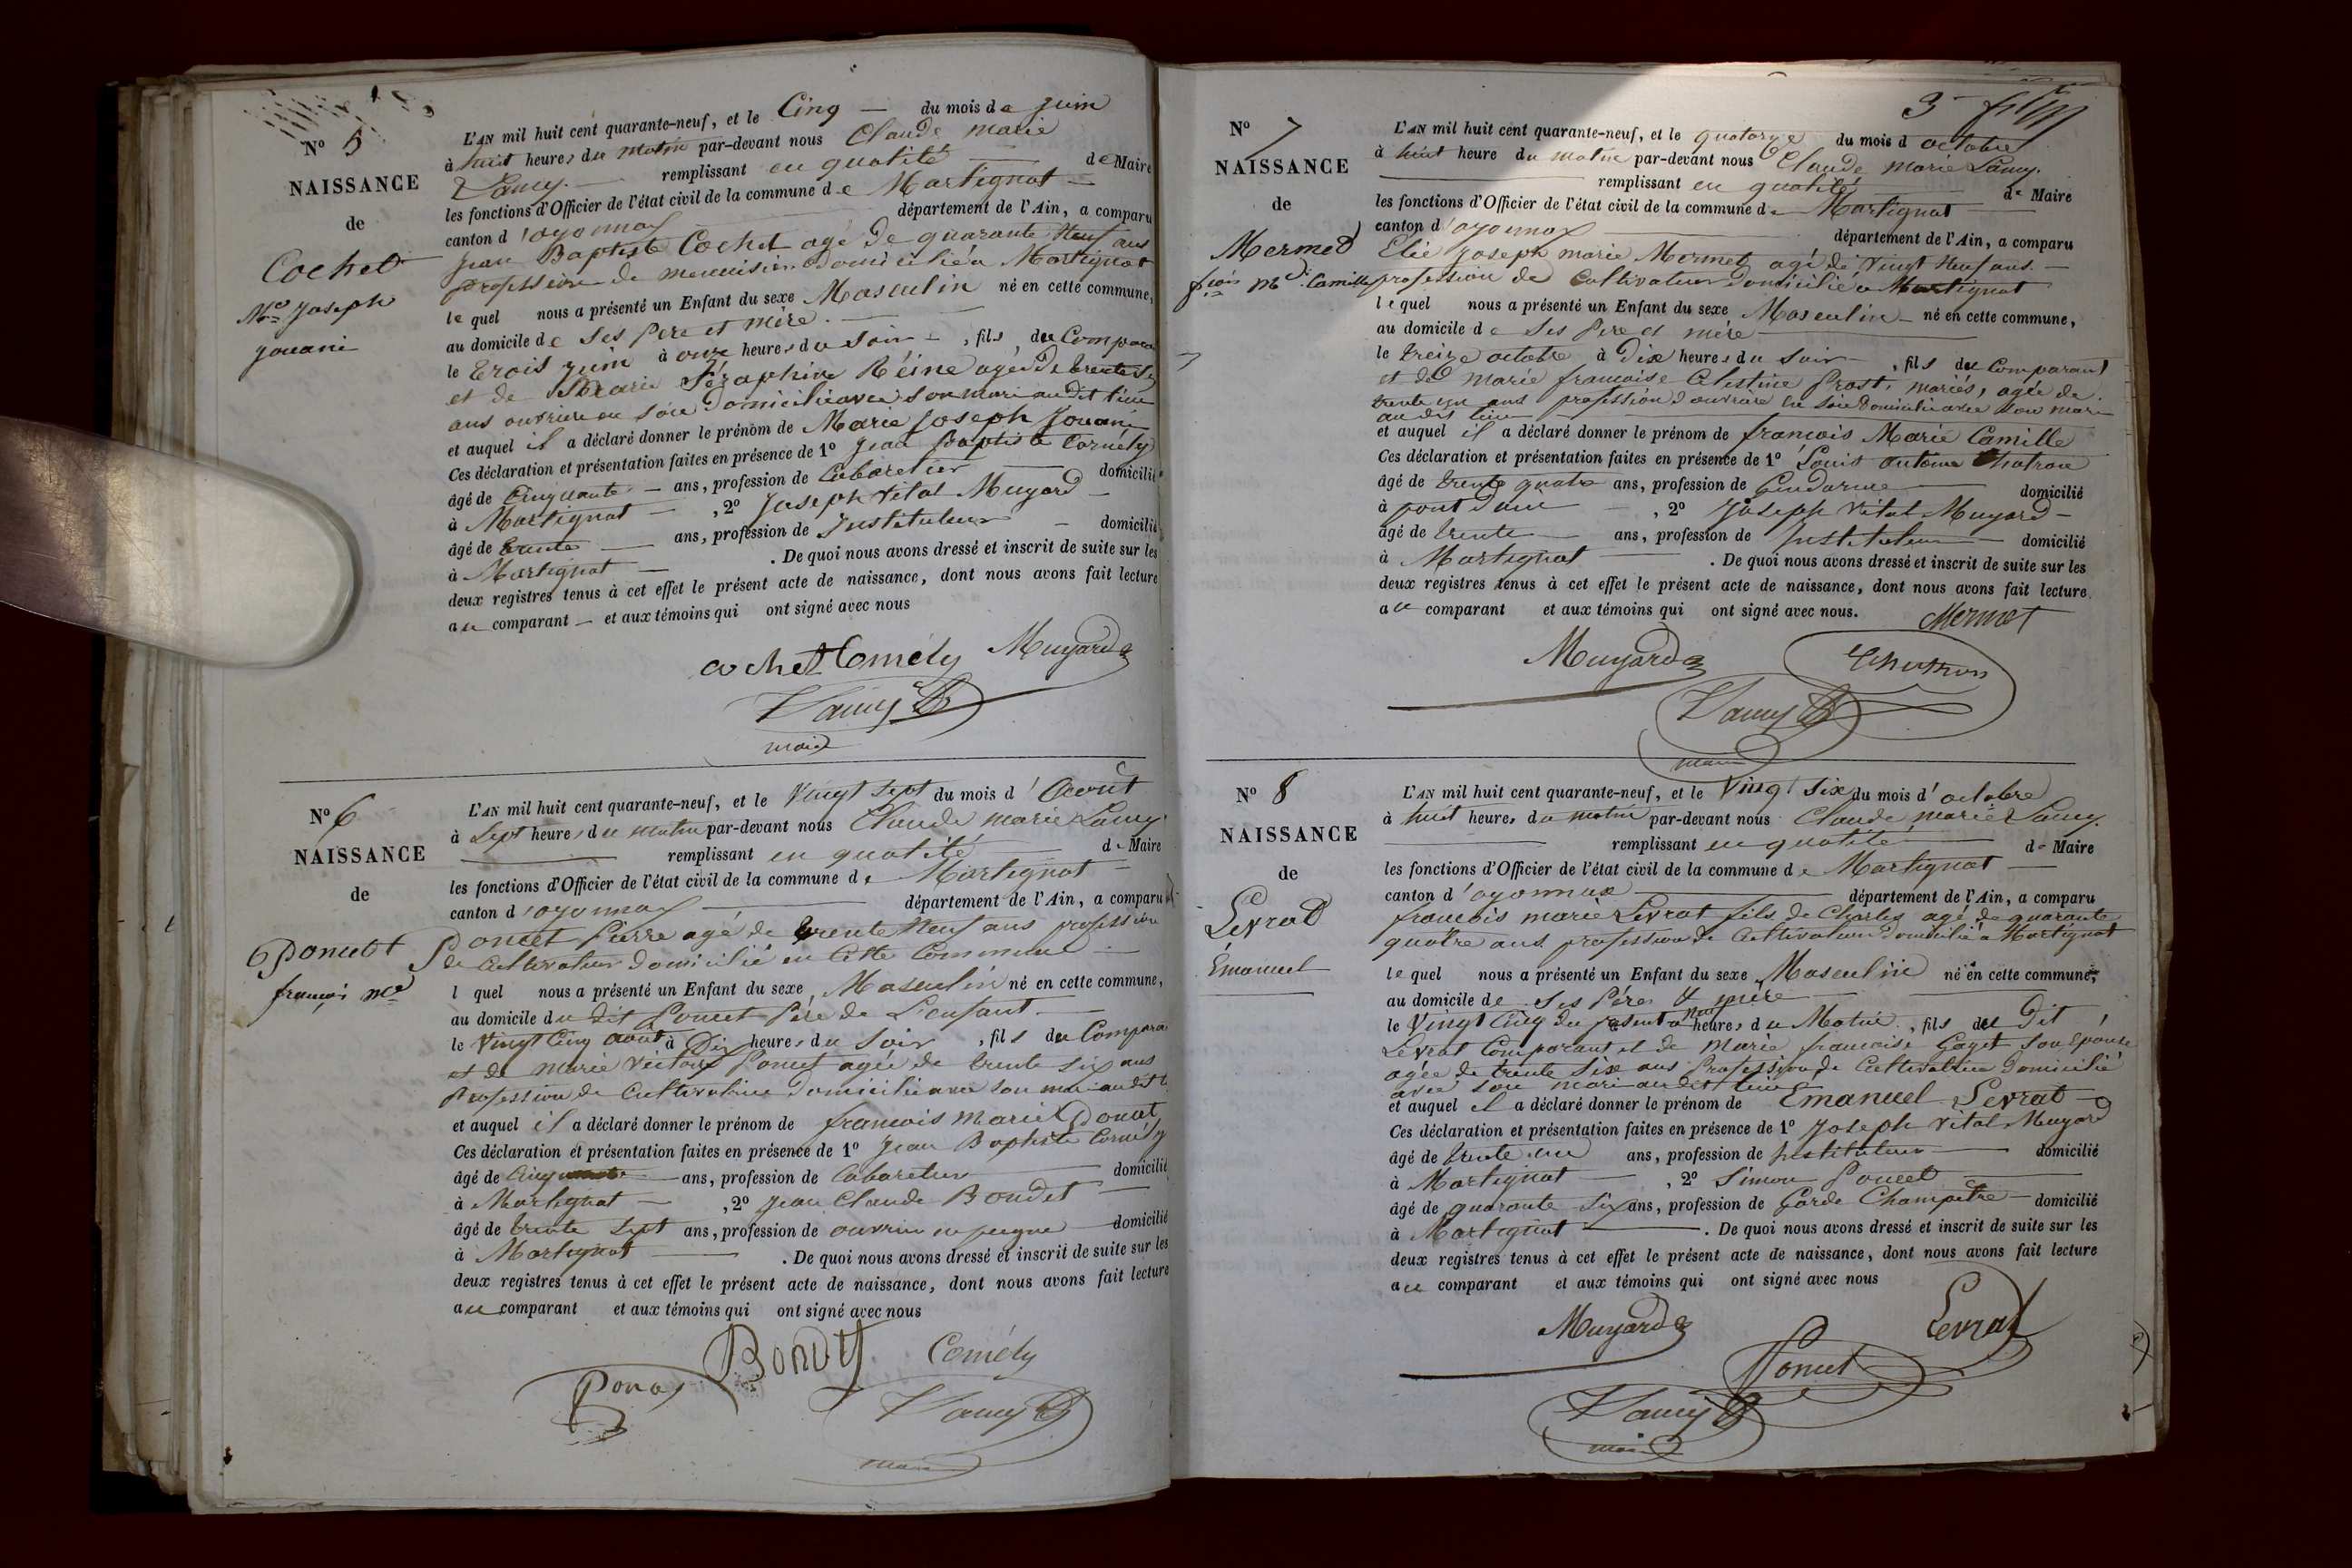 N° 5
NAISSANCE
de
Cochet
Mie Joseph
Jouani
L'AN mil huit cent quarante-neuf, et le Cinq — du mois de juin
à huit heures du matin par-devant nous Claude marie
Lamy. — remplissant en qualité — de Maire
les fonctions d'Officier de l'état civil de la commune de Martignat —
canton d'oyonnax département de l'Ain, a comparu
Jean Baptiste Cochet agé de quarante Neuf ans
profession de menuisier domicilié à Martignat
lequel nous a présenté un Enfant du sexe Masculin né en cette commune,
au domicile de ses père et mère. —
le trois juin à onze heures du soir —, fils du Compara
et de Marie Séraphine Réine agée de trente
ans ouvrière en soie domiciliée avec son mari au dit lieu
et auquel il a déclaré donner le prénom de Marie Joseph Jouani
Ces déclaration et présentation faites en présence de 1° Jean Baptiste Cornély
âgé de Cinquante — ans, profession de Cabaretier — domicilié
à Martignat —, 2° Joseph Vital Muyard —
âgé de trente — ans, profession de Instituteur — domicilié
à Martignat — . De quoi nous avons dressé et inscrit de suite sur les
deux registres tenus à cet effet le présent acte de naissance, dont nous avons fait lecture
au comparant — et aux témoins qui ont signé avec nous
cochet Cornély Muyard
Lamy
maire
N° 6
NAISSANCE
de
Poncet
françois mie
L'AN mil huit cent quarante-neuf, et le Vingt sept du mois d'Aout
à sept heures du matin par-devant nous Claude marie Lamy.
— remplissant en qualité — de Maire
les fonctions d'Officier de l'état civil de la commune de Martignat —
canton d'oyonnax — département de l'Ain, a comparu
Poncet Pierre agé de trente Neuf ans profession
de Cultivateur domicilié en Cette Commune —
l quel nous a présenté un Enfant du sexe Masculin né en cette commune,
au domicile du dit Poncet Père de L'enfant. —
le Vingt Cinq aout à Dix heures du Soir, fils du Compara
et de marie Poncet agée de trente six ans
Profession de Cultivatrice domiciliée avec son mari au dit l
et auquel il a déclaré donner le prénom de françois Marie
Ces déclaration et présentation faites en présence de 1° Jean Baptiste Cornély
âgé de Cinquante — ans, profession de Cabaretier — domicilié
à Martignat —, 2° Jean Claude Bondet —
âgé de trente sept ans, profession de ouvrier en peigne — domicilié
à Martignat — . De quoi nous avons dressé et inscrit de suite sur les
deux registres tenus à cet effet le présent acte de naissance, dont nous avons fait lecture
au comparant et aux témoins qui ont signé avec nous
Cornély
Lamy
maire
N° 7
NAISSANCE
de
Mermet
fçois Mie Camille
L'AN mil huit cent quarante-neuf, et le quatorze du mois d octobre
à huit heure du matin par-devant nous Claude Marie Lamy.
— remplissant en qualité — de Maire
les fonctions d'Officier de l'état civil de la commune de Martignat —
canton d'oyonnax — département de l'Ain, a comparu
Elie Joseph marie Mermet agé de Vingt Neuf ans. —
profession de Cultivateur domicilié à Martignat
lequel nous a présenté un Enfant du sexe Masculin — né en cette commune,
au domicile de ses père et mère —
le treize octobre à Dix heures du soir —, fils du Comparant
et de Marie francoise Celestine Prost, mariés, agée de
trente un ans profession d'ouvrière en soie domiciliée avec son mari
au dit lieu —
et auquel il a déclaré donner le prénom de francois Marie Camille
Ces déclaration et présentation faites en présence de 1° Louis antoine
âgé de trente quatre ans, profession de Gendarme — domicilié
à pont d'ain —, 2° Joseph Vital Muyard —
âgé de trente — ans, profession de Instituteur — domicilié
à Martignat — . De quoi nous avons dressé et inscrit de suite sur les
deux registres tenus à cet effet le présent acte de naissance, dont nous avons fait lecture
au comparant et aux témoins qui ont signé avec nous. Mermet
Muyard
Lamy
maire
N° 8
NAISSANCE
de
Levrat
Émanuel
L'AN mil huit cent quarante-neuf, et le Vingt six du mois d'octobre
à huit heures du matin par-devant nous Claude marie Lamy.
— remplissant en qualité — de Maire
les fonctions d'Officier de l'état civil de la commune de Martignat —
canton d'oyonnax — département de l'Ain, a comparu
francois marie Levrat fils de Charles agé de quarante
quatre ans profession de Cultivateur domicilié à Martignat
lequel nous a présenté un Enfant du sexe Masculin né en cette commune,
au domicile de ses Père & mère —
le Vingt Cinq du présent à neuf heures du Matin, fils du Dit
Levrat Comparant et de Marie francoise Gaget son épouse
agée de trente Six ans Profession de Cultivatrice domicilié
avec son mari au dit lieu
et auquel il a déclaré donner le prénom de Emanuel Levrat —
Ces déclaration et présentation faites en présence de 1° Joseph Vital Muyard
âgé de trente un ans, profession de Instituteur — domicilié
à Martignat —, 2° Simon Poncet —
âgé de quarante Six ans, profession de Garde Champêtre — domicilié
à Martignat — . De quoi nous avons dressé et inscrit de suite sur les
deux registres tenus à cet effet le présent acte de naissance, dont nous avons fait lecture
au comparant et aux témoins qui ont signé avec nous
Muyard Levrat
Poncet
Lamy
maire